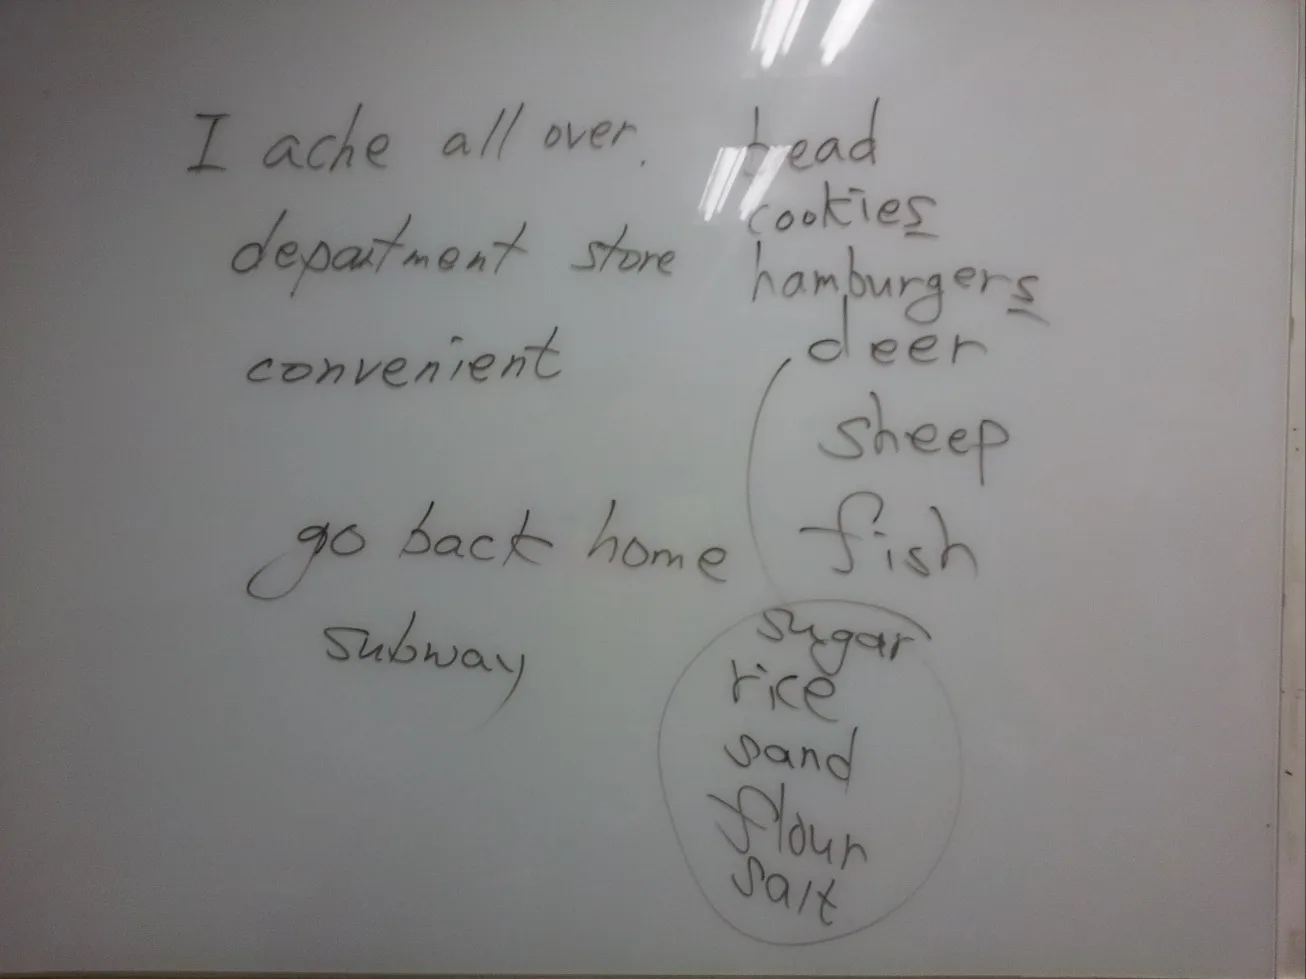 I ache all over.
department store
convenient
go back home
subway
bread
cookies
hamburgers
deer
sheep
fish
sugar
rice
sand
flour
salt